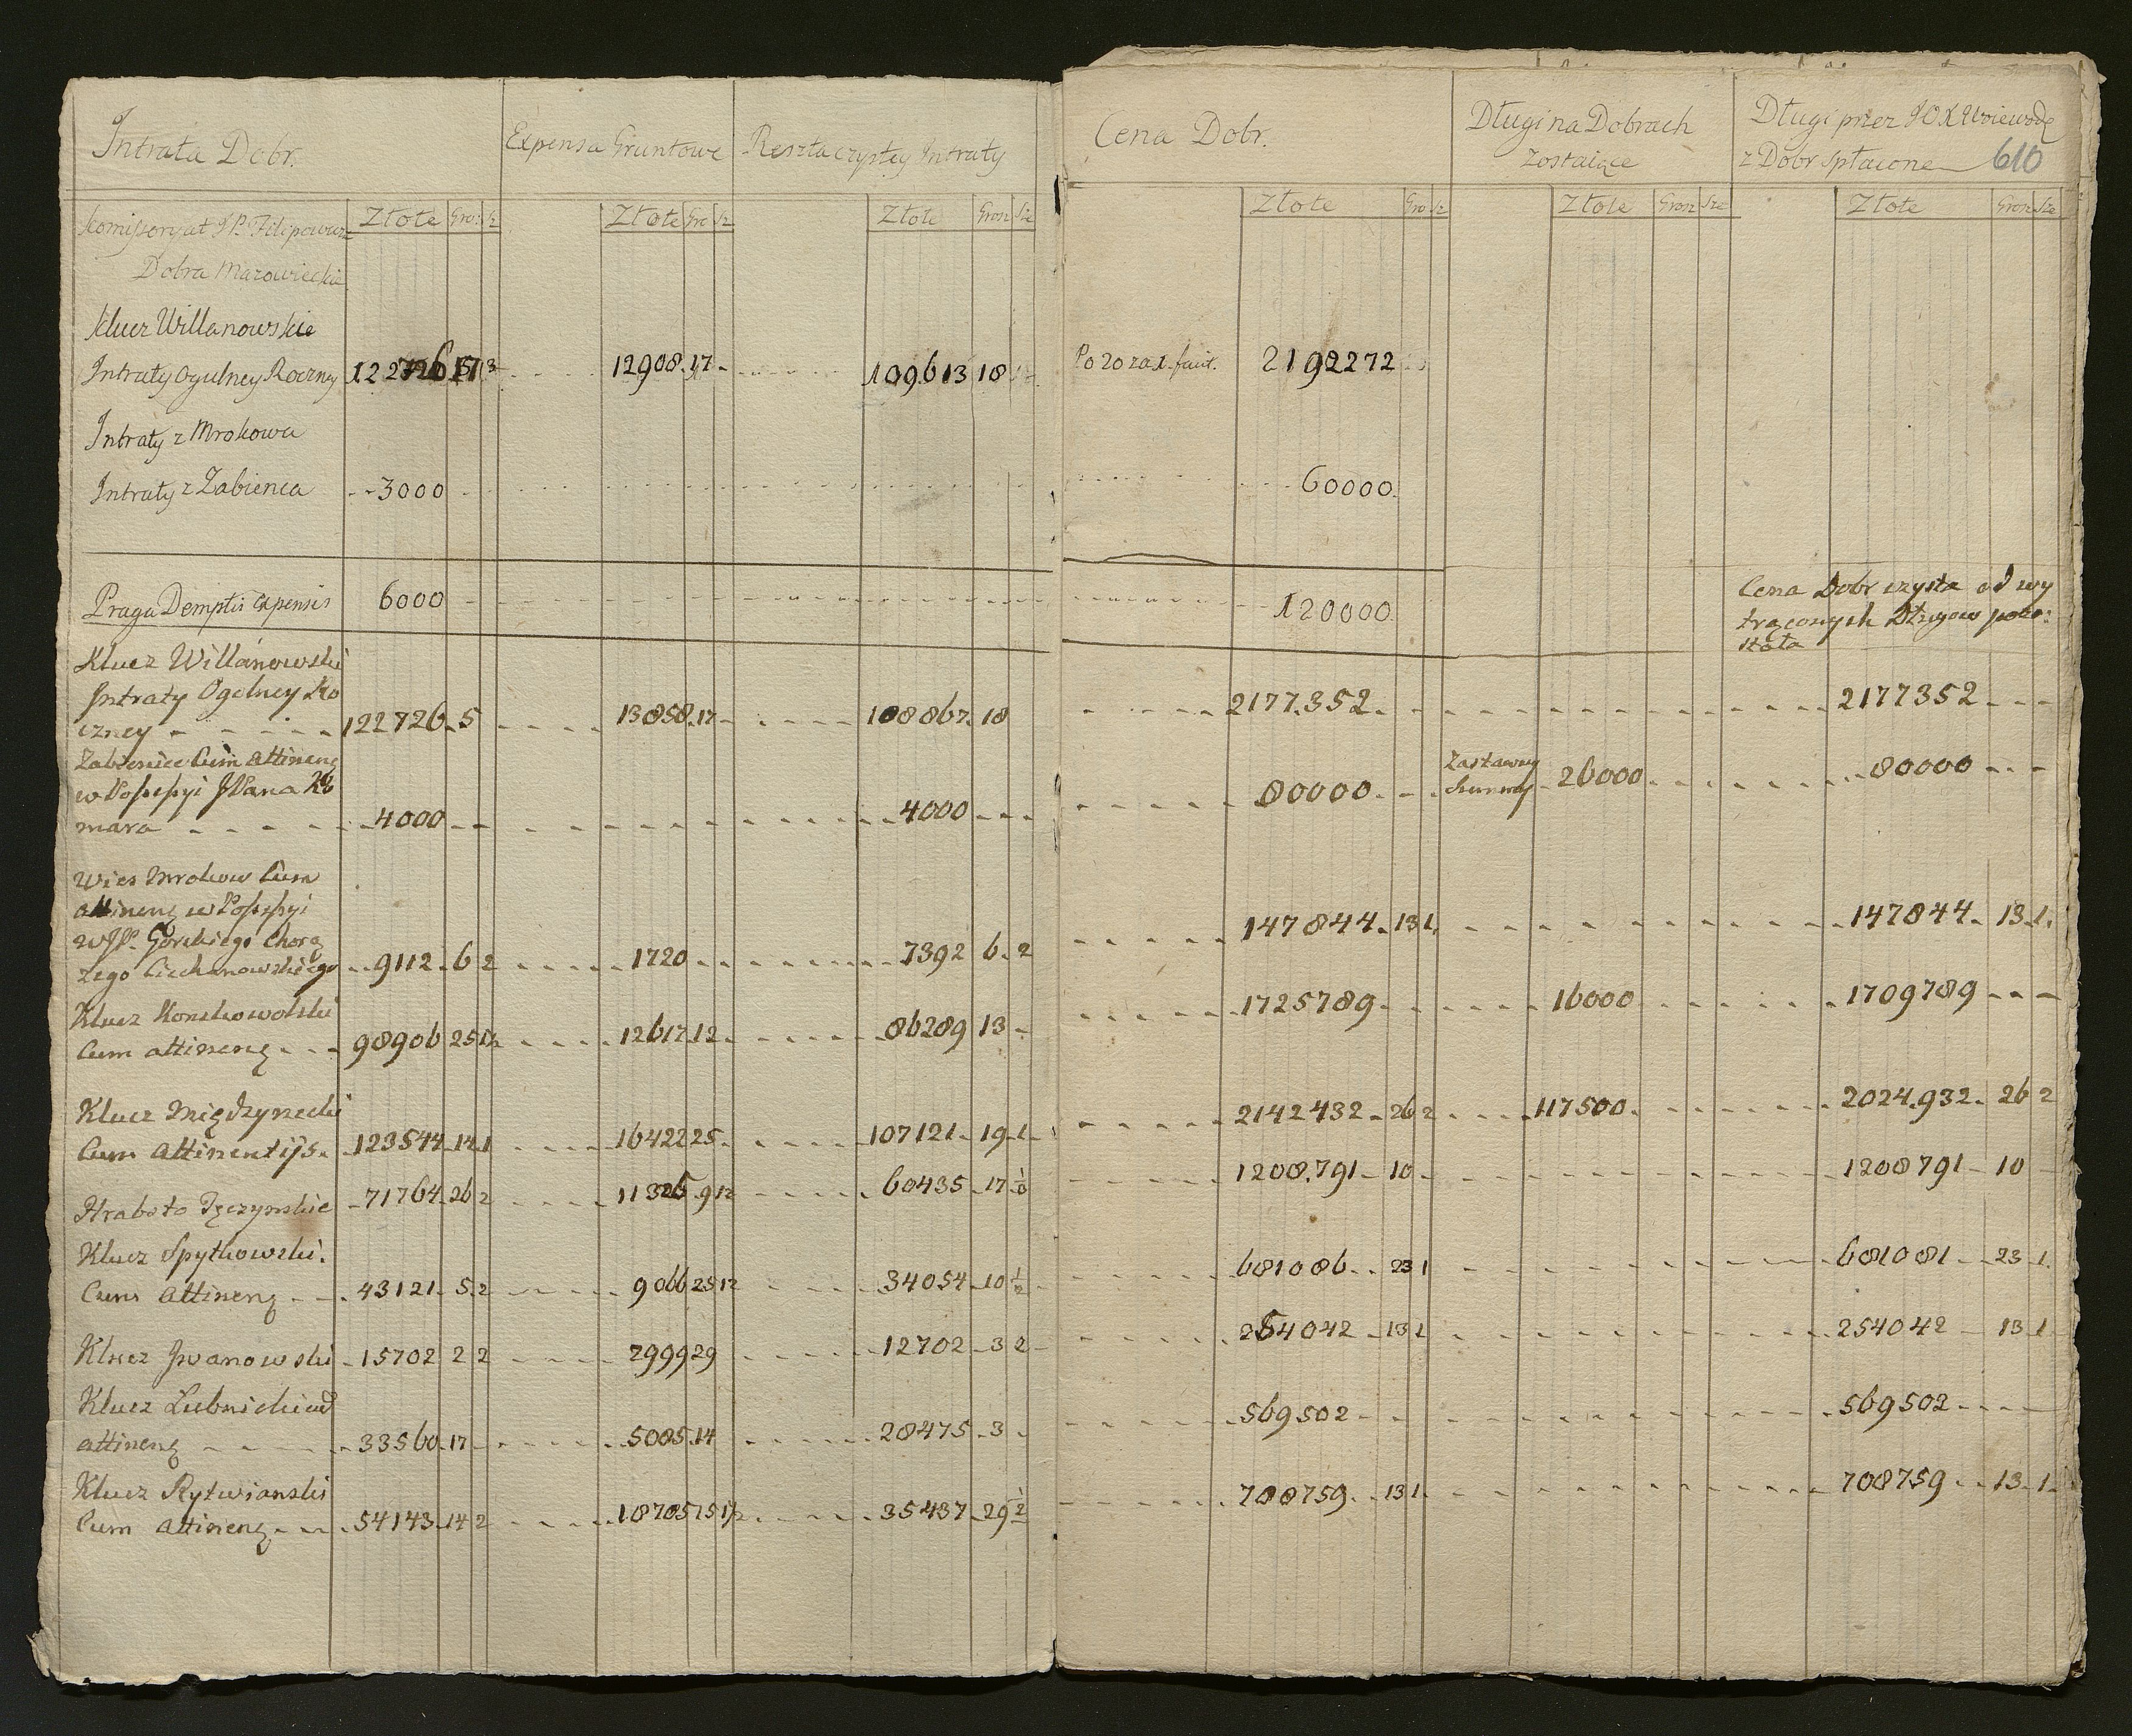 Intrata Dobr. Expensa Gruntowe Reszta czystey Intraty Cena Dobr. Długi na Dobrach Długi przez JOX Woiewodę
zostaiące z Dobr spłacone 610
Złote Gro: Sz Złote Gro Sz Złote Grosz Sze Złote Gro Sz Złote Grosz Sze Złote Grosz Sze
Komissoryat JP. Filipowicza
Dobra Mazowieckie
Klucz Willanowskie
Intraty Ogulney Roczney 122726 12908.17 109613 18 Po 20 za 1. faiit. 2192272
Intraty z Mrokowa
Intraty z Zabienca 3000 60000.
Praga Demptis expensis 6000 120000
Cena Dobr czysta od wy
trąconych Długow pozo:
stała
Klucz Willanowski
Intraty Ogolney Ro
czney 122726 5 13858.17 108867. 18 2177.352. 2177352
Zabieniec Cum Attineng
w Possessyi JPana Ko
mara 4000 4000 80000. Zastawney Summy 26000 80000
Wies Mrokow Cum
Attineng w Possessyi
WJP. Gorskiego Chorą
zego Ciechanowskiego 9112 6 2 1720 7392 6. 2 147844. 13 1. 147844. 13 1.
Klucz Konskowolski
Cum attineng 98906 25 1/2 12617.12. 86289 13 1725789. 16000 1709789
Klucz Międzyrzecki
Cum Attinentijs. 123544 14.1 16422 25. 107121 19 1 2142432 26 2 117500. 2024.932. 26 2
Hrabsto Tęczynskie 71764 26 2 11326 9 1/2 60435 17 1208.791 10 1208791 10
Klucz Spytkowski.
Cum Attineng 43121 5.2 9066 25 1/2 34054 10 1/2 681086 23 1 681081 23 1.
Klucz Jwanowski 15702 2 2 2999 29 12702 3 2 254042 13 1 254042 13 1
Klucz Lubnicki cud
attineng 33560.17 5085.14 28475 3 569502 569502
Klucz Rytwianski
Cum Attineng 54143 14 2 18705 15 1/2 35437 29 1/2 708759. 13 1. 708759 13 1.